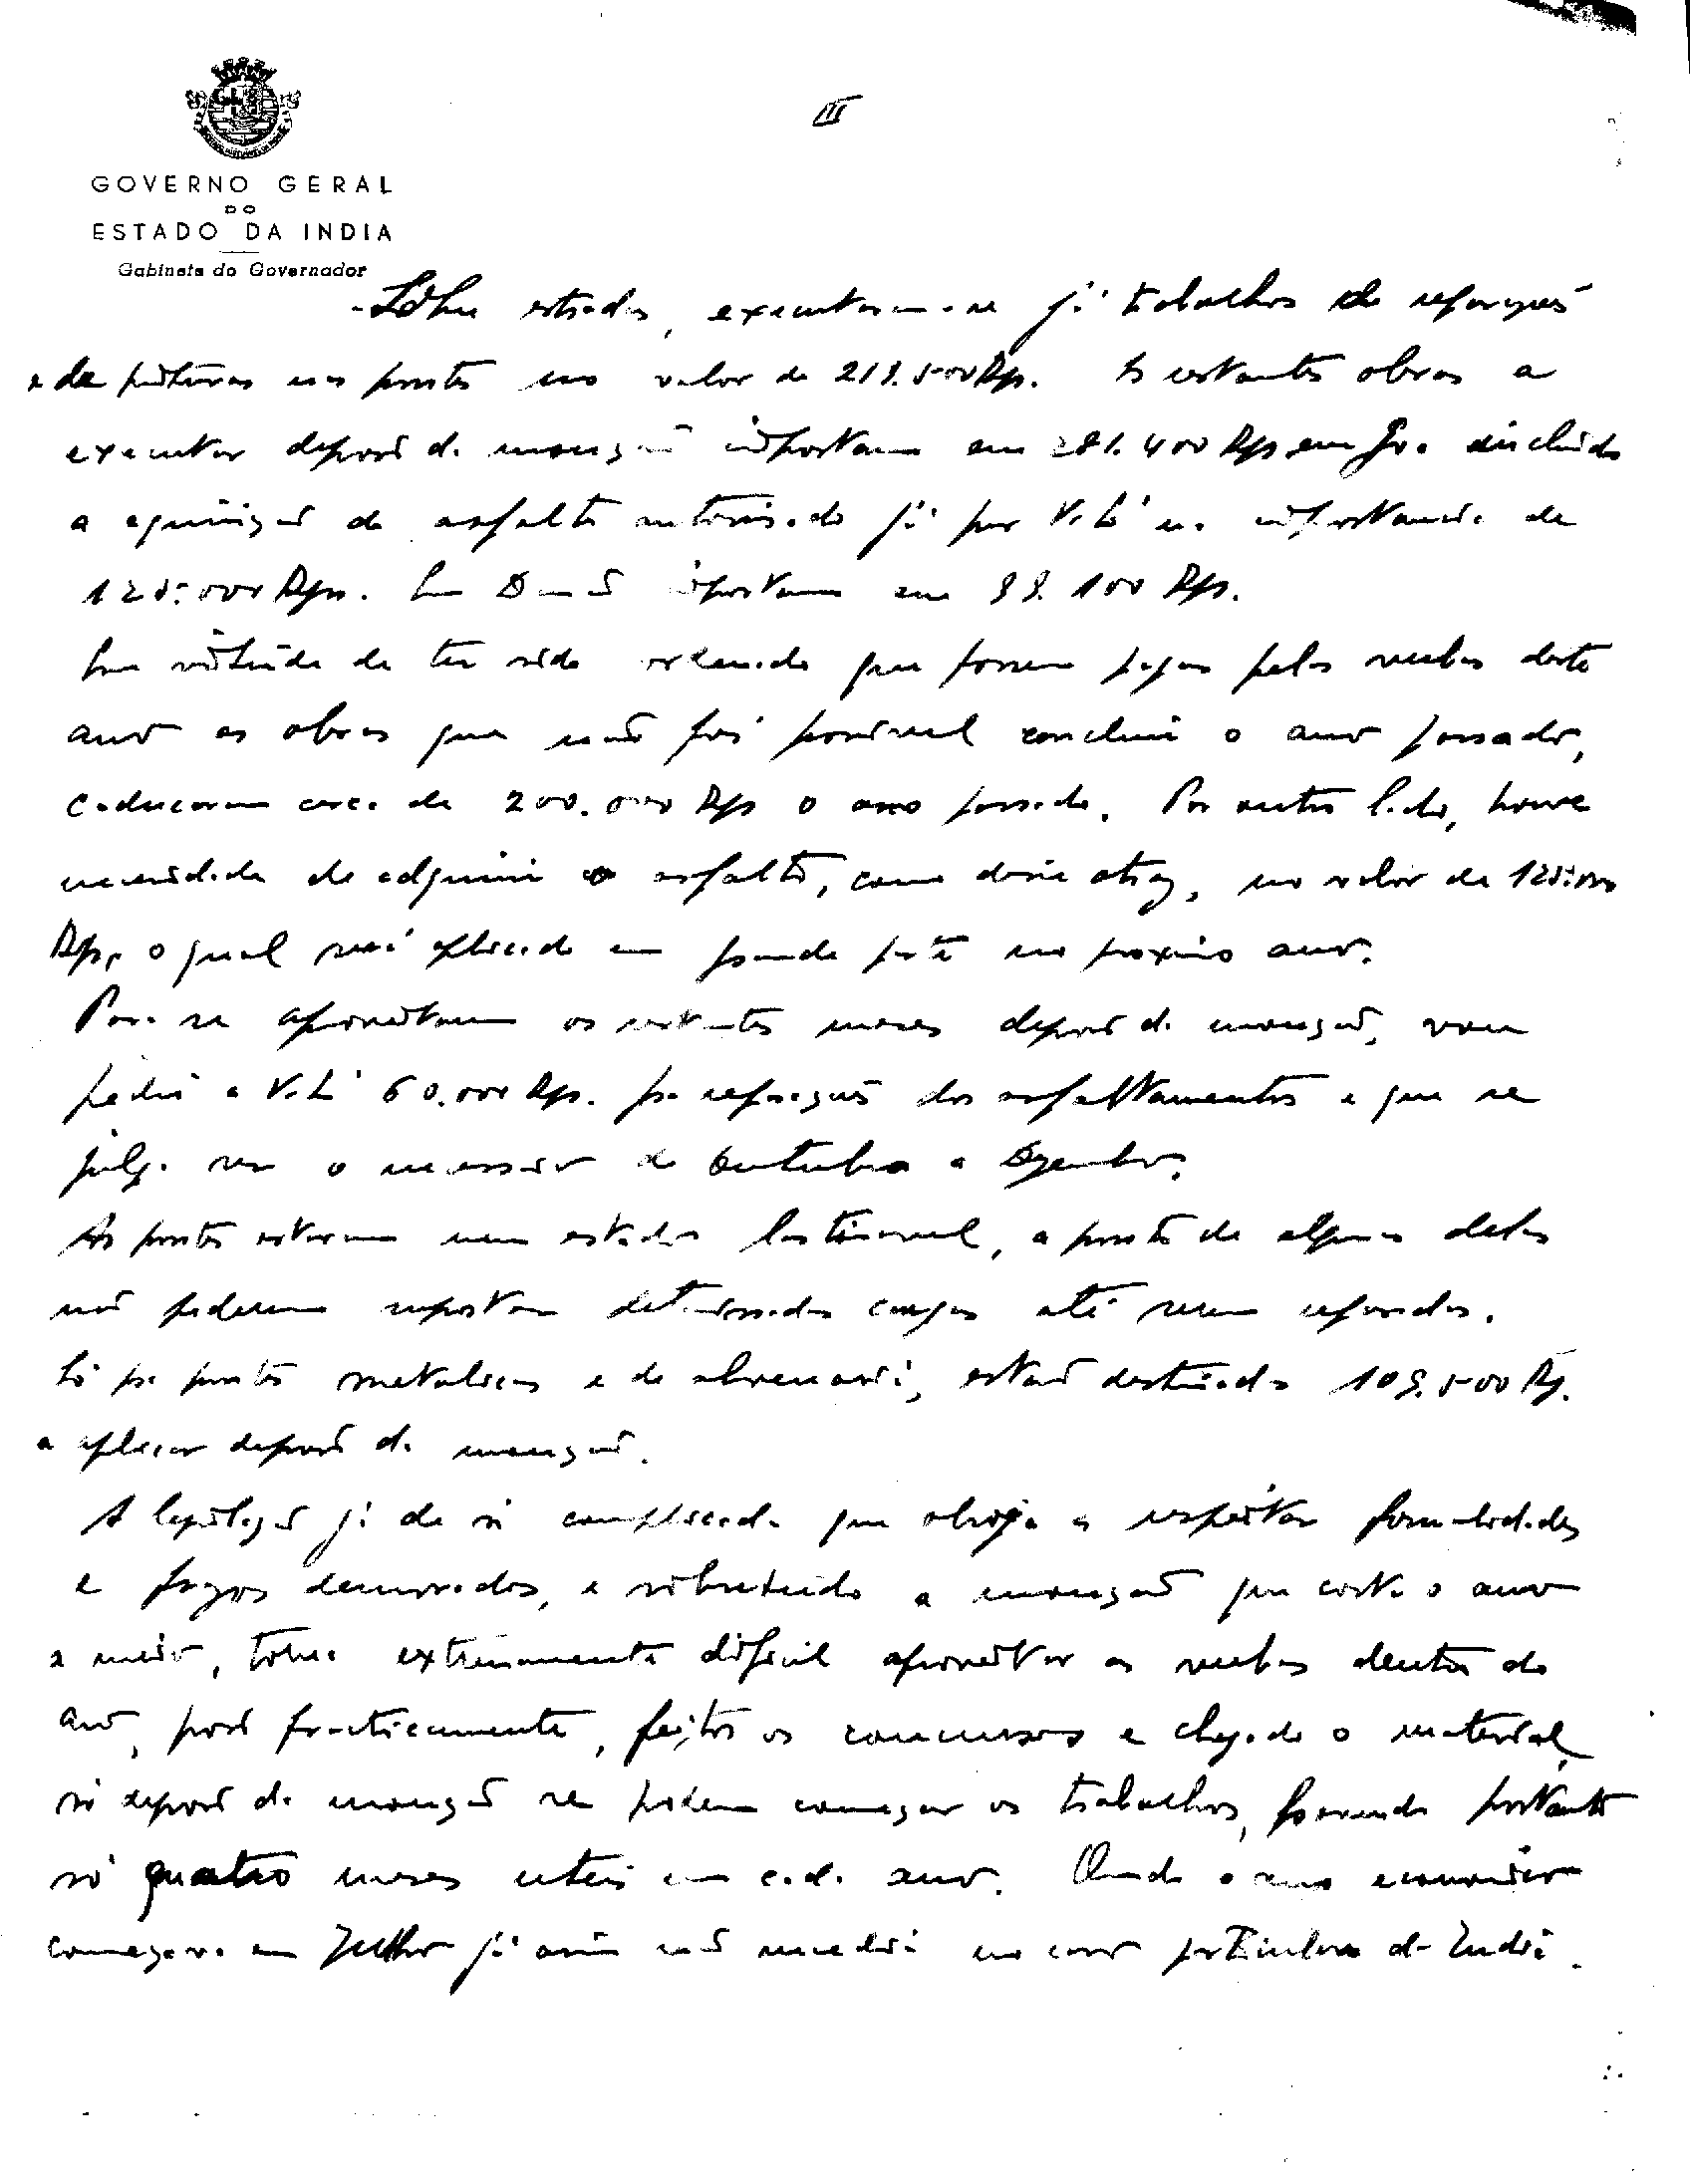 III
GOVERNO GERAL
DO
ESTADO DA INDIA
Gabinete do Governador
Sobre estradas, executaram-se já trabalhos de reparação
e de pinturas nas pontes no valor de 218.500 Rps. As restantes obras a
executar depois da monção importam em 281.400 Rps em Goa incluindo
a aquisição de asfalto autorizada já por V. Exª na importancia de
125:000 Rps. Em Damão importam em 99.100 Rps.
Em virtude de ter sido ordenado que fossem pagas pelas verbas deste
ano as obras que não foi possivel concluir o ano passado,
caducaram cerca de 200.000 Rps o ano passado. Por outro lado, houve
necessidade de adquirir o asfalto, como disse atraz, no valor de 125:000
Rps, o qual será aplicado em grande parte no proximo ano.
Para se aproveitarem os restantes meses depois da monção, vou
pedir a V. Exª 60.000 Rps. para reparação dos asfaltamentos e que se
julga ser o necessario de Outubro a Dezembro.
As pontes estavam num estado lastimavel, a ponto de algumas delas
não poderem suportar determinadas cargas até serem reparadas.
Só para pontes metalicas e de alvenaria, estão destinadas 109.500 Rps.
a aplicar depois da monção.
A legislação já de si complicada que obriga a respeitar formalidades
e prazos demorados, e sobretudo a monção que corta o ano
a meio, torna extremamente dificil aproveitar as verbas dentro do
ano, pois praticamente, feitos os concursos e chegado o material,
só depois da monção se podem começar os trabalhos, ficando portanto
só quatro meses uteis em cada ano. Quando o ano economico
começava em Julho já assim não sucedia no caso particular da India.